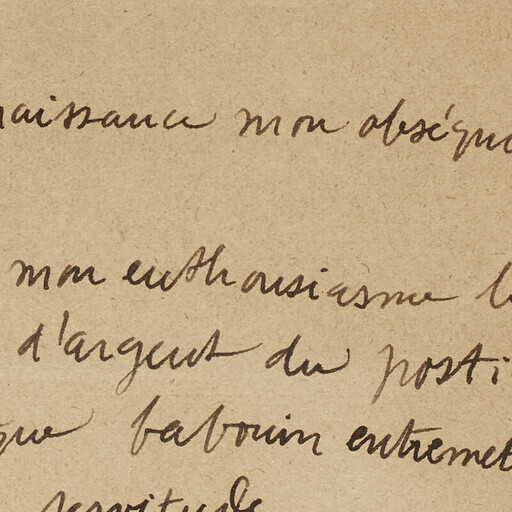 naissance mon obséqu
mon enthousiasme l
d'argent du posti
que babouin entremet
servitude